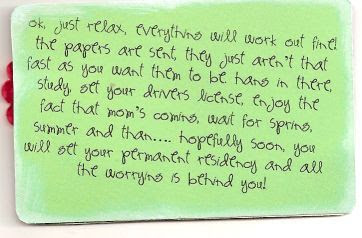 ok, just relax, everything will work out fine!
the papers are sent, they just aren't that
fast as you want them to be. hang in there,
study, get your drivers license, enjoy the
fact that mom's coming, wait for spring,
summer and than.... hopefully soon, you
will get your permanent residency and all
the worrying is behind you!